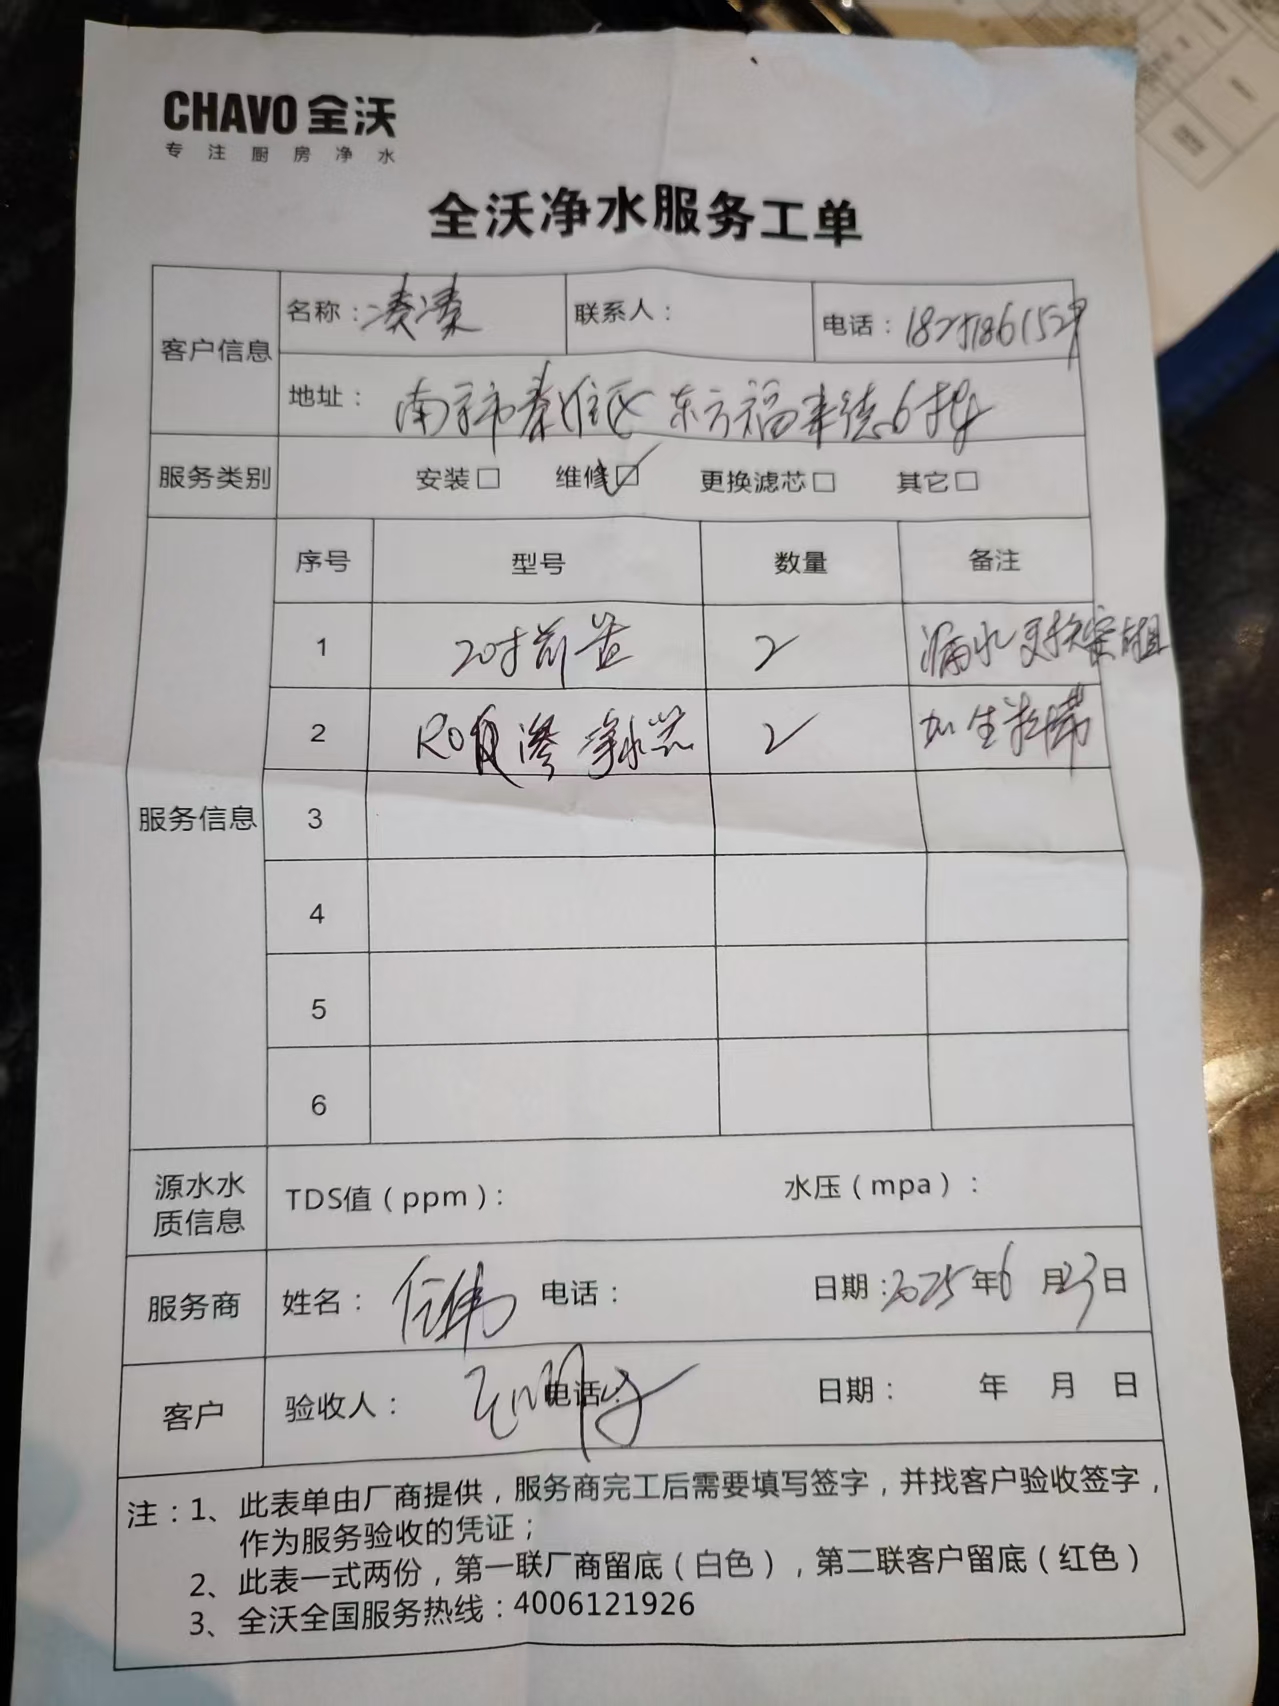 CHAVO 全沃
专注厨房净水
全沃净水服务工单
客户信息
名称：凑凑
联系人：
电话：
地址：南京市秦淮区东方福来德6楼
服务类别
安装□ 维修☑ 更换滤芯□ 其它□
服务信息
序号 型号 数量 备注
1 20寸前置 2 漏水更换密封组
2 RO反渗净水芯 2
3
4
5
6
源水水质信息
TDS值（ppm）： 水压（mpa）：
服务商
姓名： 电话： 日期：2025年6月23日
客户
验收人： 电话： 日期： 年 月 日
注：1、此表单由厂商提供，服务商完工后需要填写签字，并找客户验收签字，
作为服务验收的凭证；
2、此表一式两份，第一联厂商留底（白色），第二联客户留底（红色）
3、全沃全国服务热线：4006121926